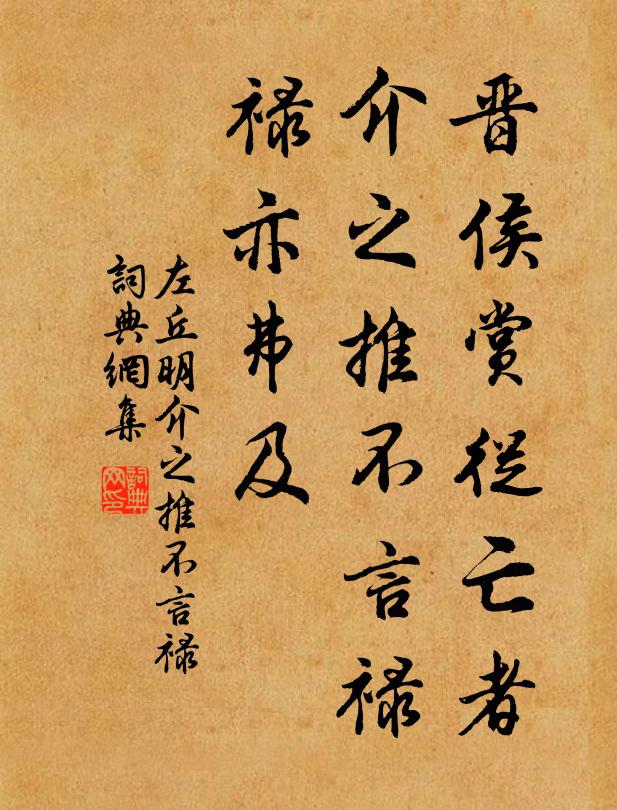 晋侯赏從亡者
介之推不言禄
禄亦弗及
左丘明介之推不言禄
詞典網集
詞典
网印